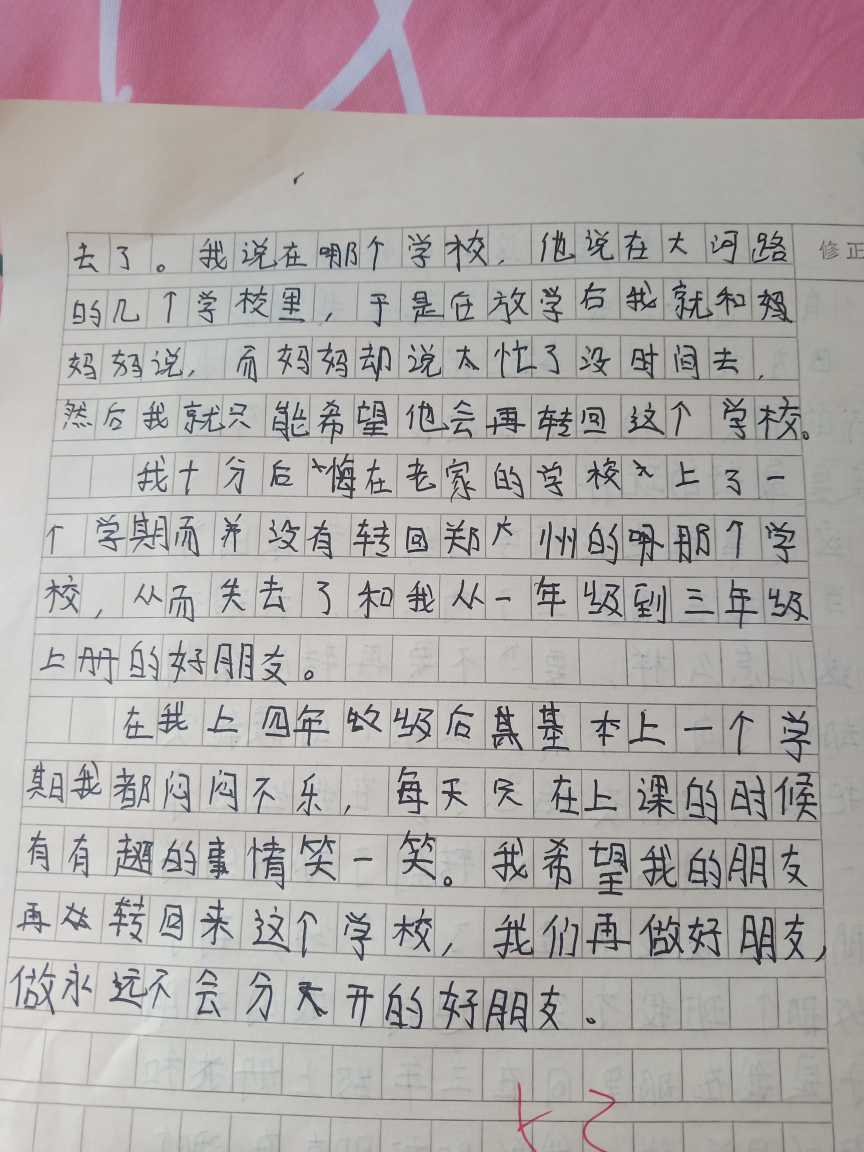 去了。我说在哪个学校，他说在大河路
修正
的几个学校里，于是在放学右我就和妈
妈妈说，而妈妈却说太忙了没时间去，
然后我就只能希望他会再转回这个学校。
我十分后悔在老家的学校上了一
个学期而并没有转回郑州的那个学
校，从而失去了和我从一年级到三年级
上册的好朋友。
在我上四年级后基本上一个学
期我都闷闷不乐，每天只在上课的时候
有有趣的事情笑一笑。我希望我的朋友
再转回来这个学校，我们再做好朋友，
做永远不会分开的好朋友。